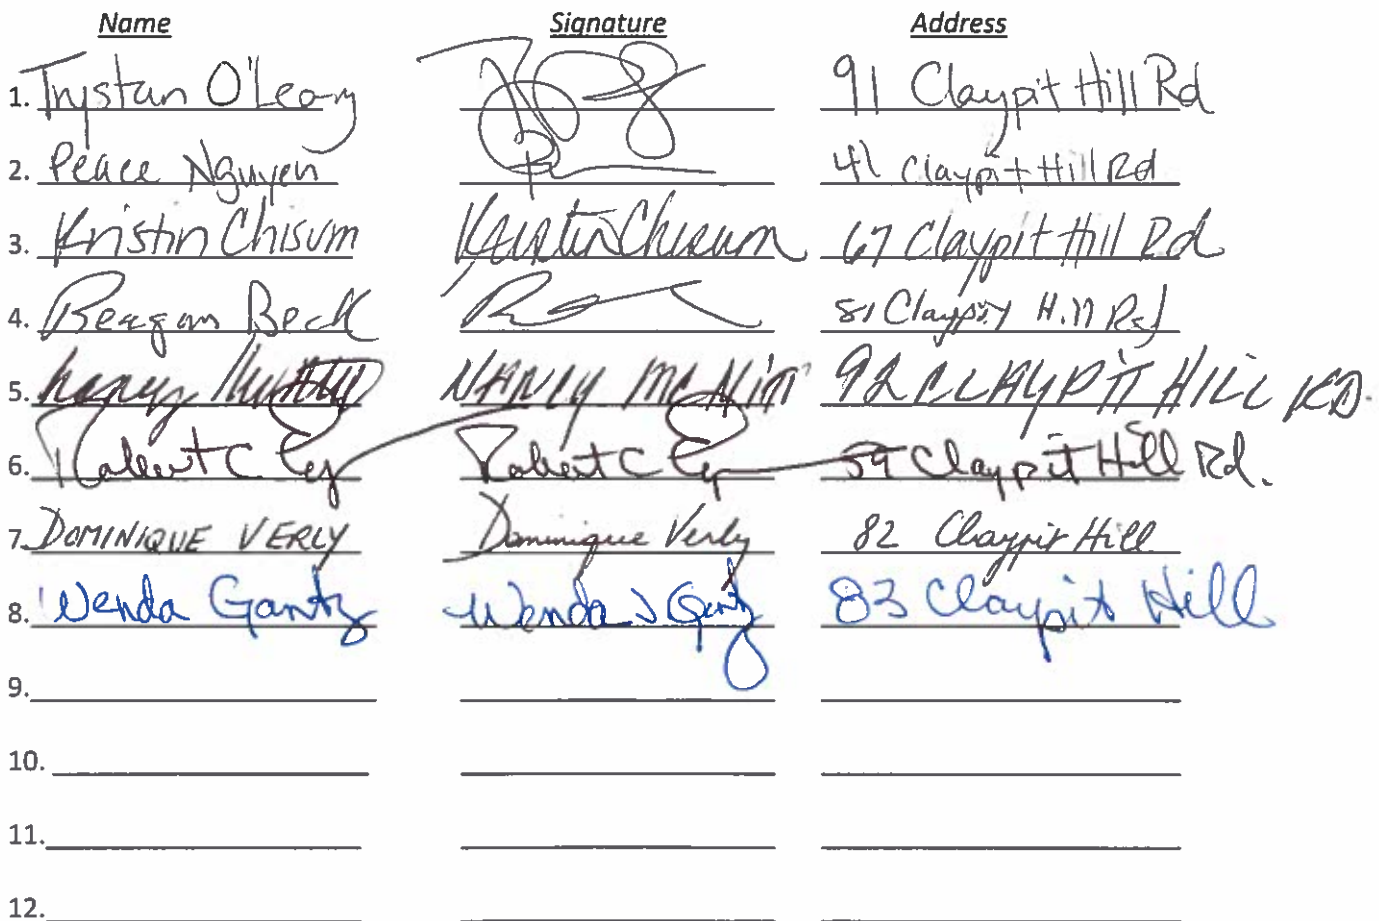 Name Signature Address
1. Trystan O'Leary 91 Claypit Hill Rd
2. Peace Nguyen 41 Claypit Hill Rd
3. Kristin Chisum Kristin Chisum 67 Claypit Hill Rd
4. Reagan Beck 81 Claypit Hill Rd
5. Nancy NANCY 92 CLAYPIT HILL RD.
6. Robert C Robert C 59 Claypit Hill Rd.
7. DOMINIQUE VERLY Dominique Verly 82 Claypit Hill
8. Wenda Gantz Wenda J Gantz 83 Claypit Hill
9.
10.
11.
12.